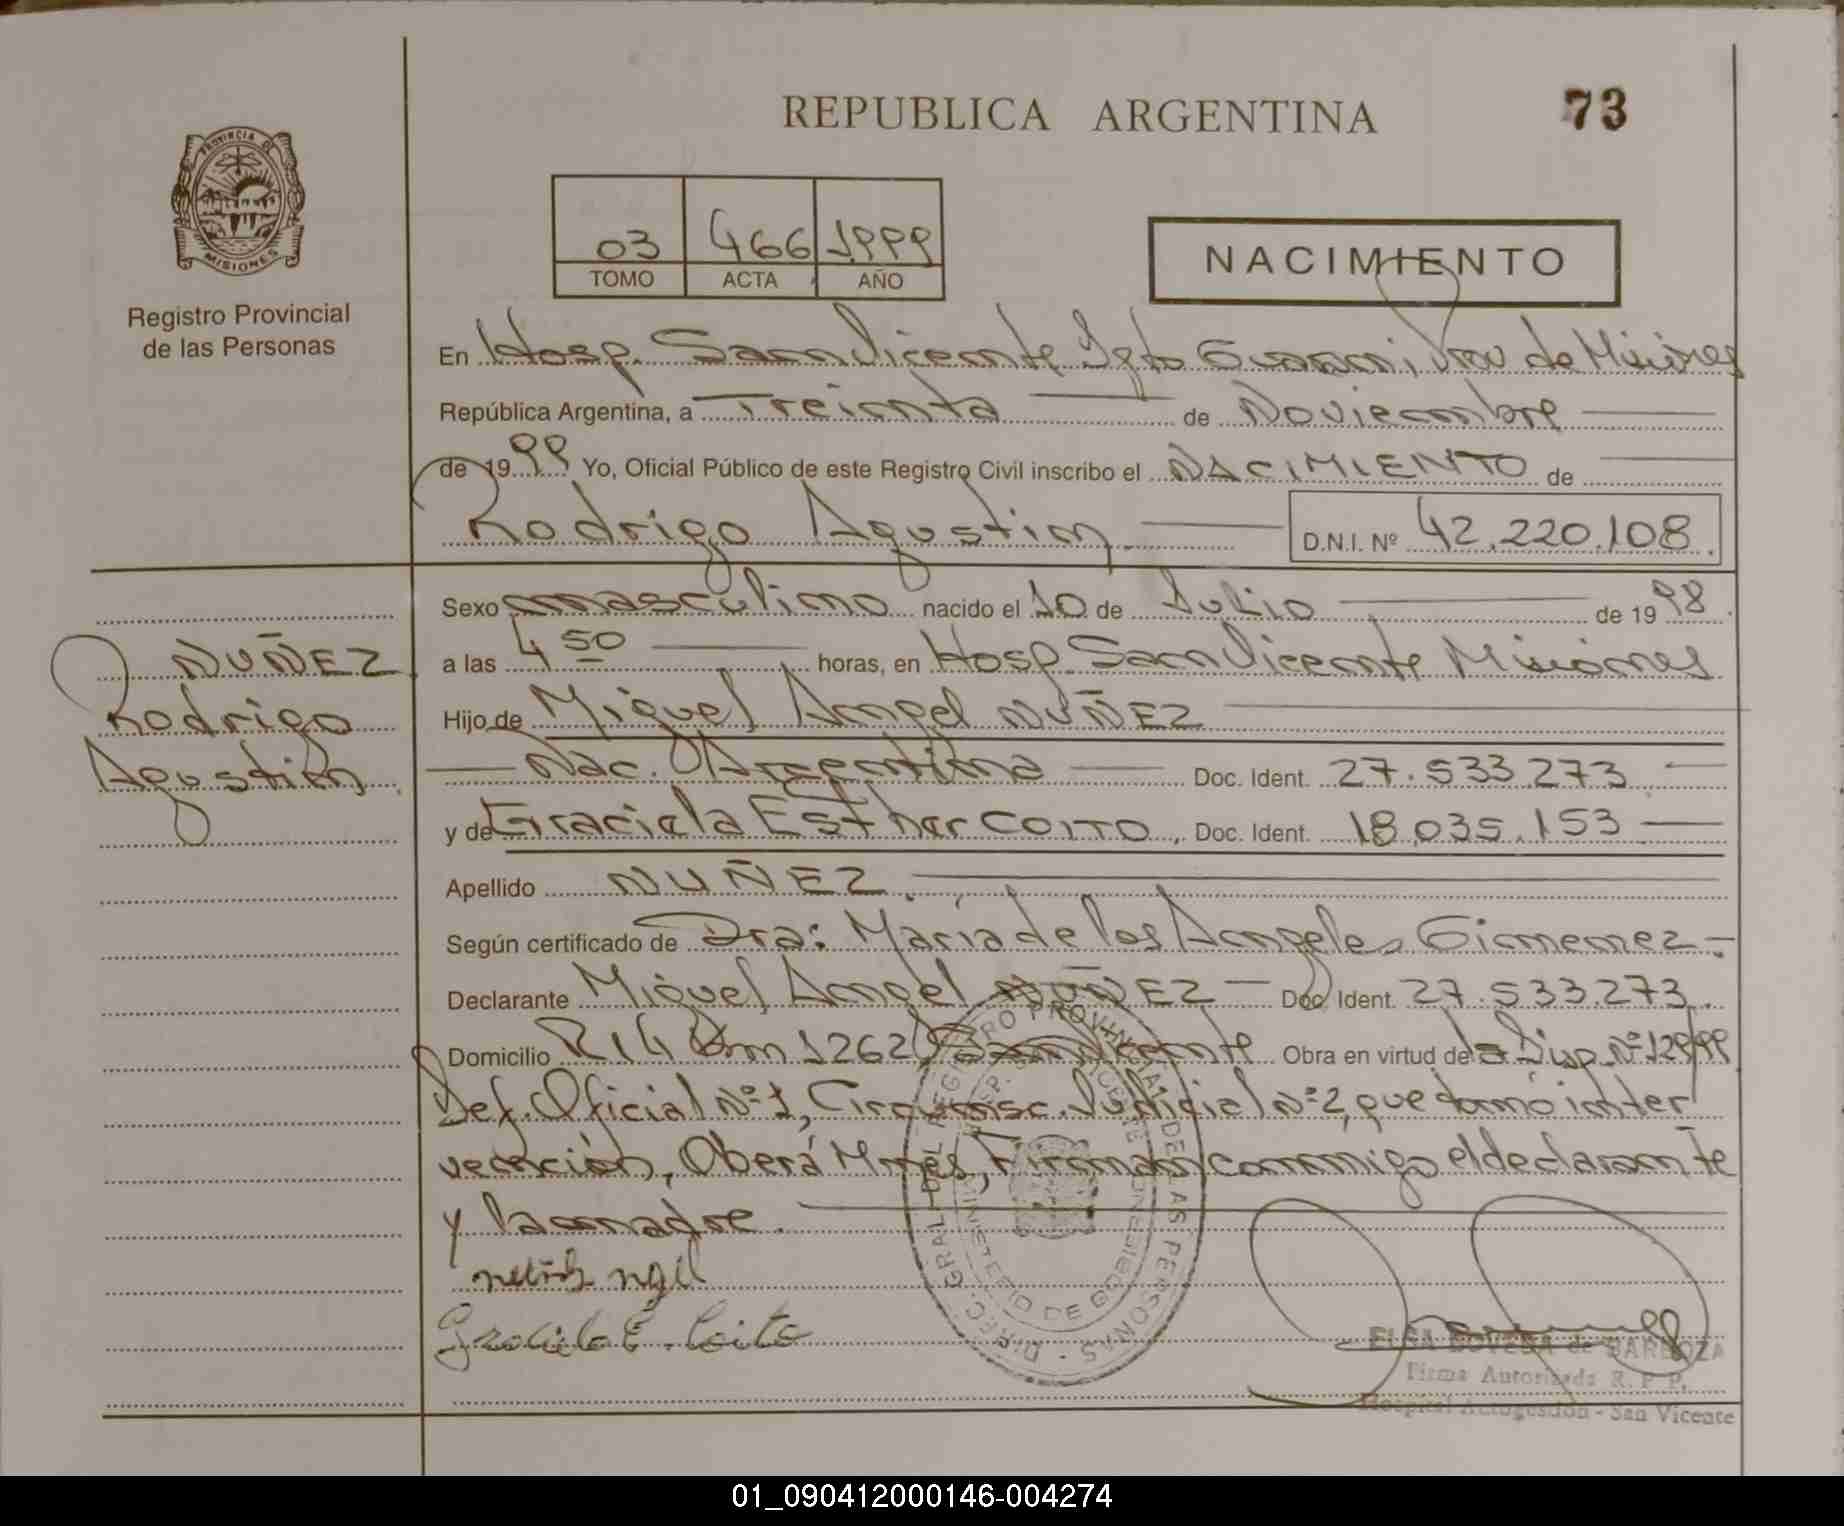 REPUBLICA ARGENTINA
73
PROVINCIA DE
MISIONES
Registro Provincial
de las Personas
03 466 1.999
TOMO ACTA AÑO
NACIMIENTO
En Hosp. San Vicente Dpto Guarani, Prov de Misiones
República Argentina, a Treinta de Noviembre
de 1999 Yo, Oficial Público de este Registro Civil inscribo el NACIMIENTO de
Rodrigo Agustin D.N.I. Nº 42.220.108.
Sexo masculino nacido el 10 de Julio de 1998.
a las 4 50 horas, en Hosp. San Vicente Misiones
Hijo de Miguel Angel NUÑEZ
Nac. Argentina Doc. Ident. 27.533.273
y de Graciela Esther COITO, Doc. Ident. 18.035.153
Apellido NUÑEZ.
Según certificado de Dra: María de los Angeles Gimenez
Declarante Miguel Angel NUÑEZ Doc. Ident. 27.533.273.
Domicilio R14 Km 1262, San Vicente Obra en virtud de la Disp. Nº 129/99
Def. Oficial Nº 1, Circunsc. Judicial nº 2, que tomó inter
vención, Oberá Mnes, Firman conmigo el declarante
y la madre.
NUÑEZ
Rodrigo
Agustin
Graciela E. Coito
DIREC. GRAL. DEL REGISTRO PROVINCIAL DE LAS PERSONAS
MINISTERIO DE GOBIERNO
ELSA BOVEDA de BARBOZA
Firma Autorizada R. P. P.
Hospital Autogestión - San Vicente
01_090412000146-004274